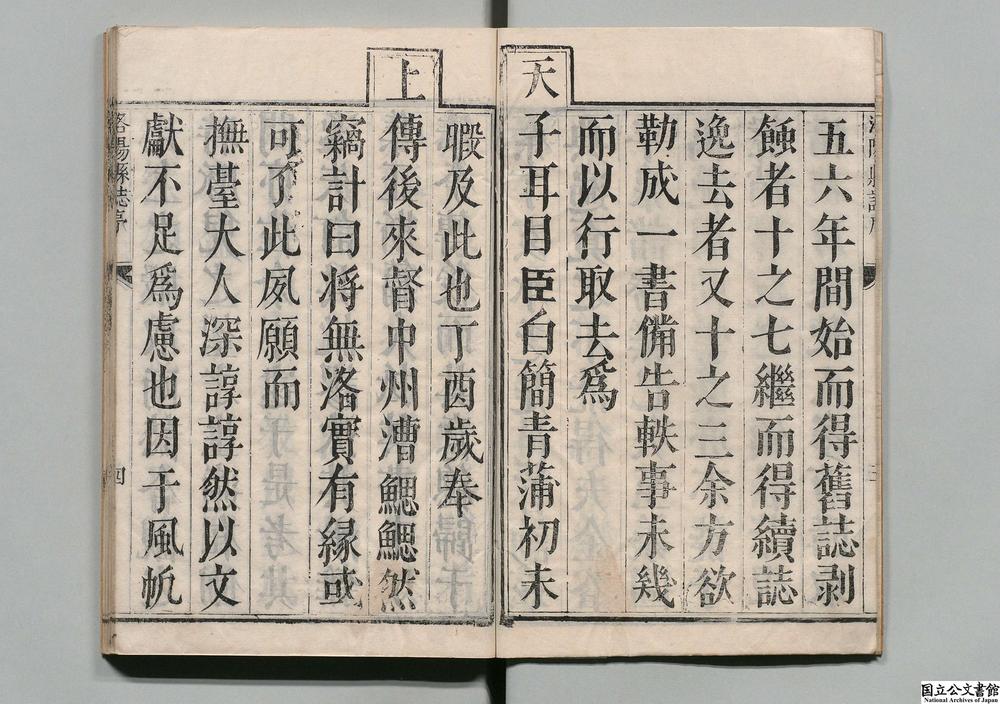 五六年間始而得舊誌剥
蝕者十之七繼而得續誌
逸去者又十之三余方欲
勒成一書備告軼事未幾
而以行取去爲
天子耳目臣白簡青蒲初未
暇及此也丁酉歲奉
上傳後來督中州漕鰓鰓然
竊計曰將無洛實有緣或
可了此夙願而
撫臺大人深諄諄然以文
獻不足爲慮也因于風帆
洛陽縣誌
四
国立公文書館
National Archives of Japan